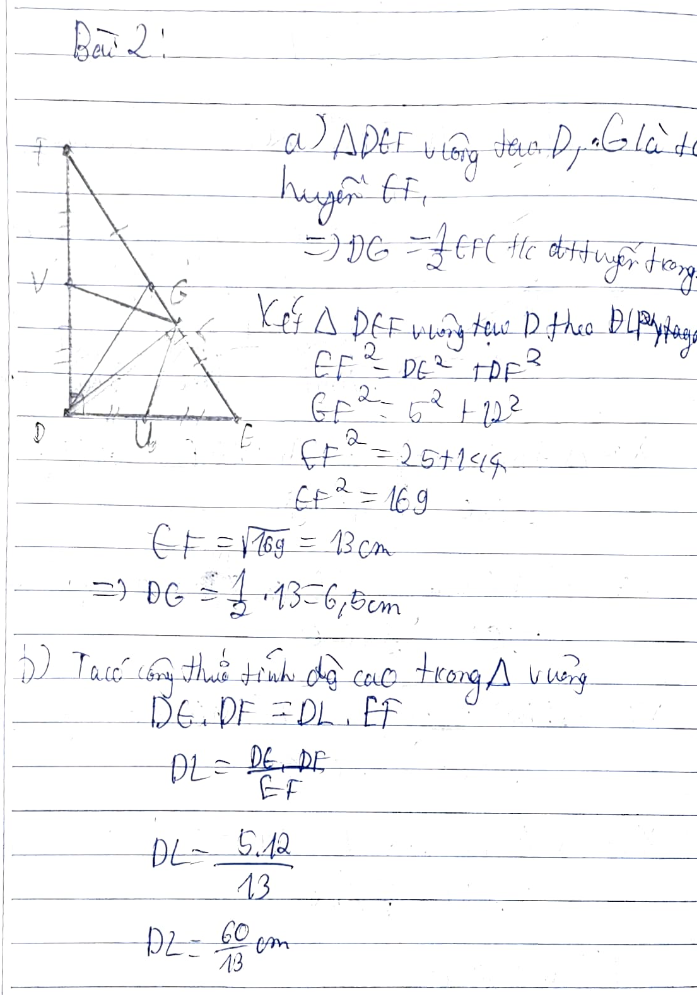 Bài 2:
a) ΔDEF vuông tại D, G là t
huyền EF,
=) DG = 1/2 EF ( t/c đtt tuyến trong
F
V
G
L
D
U
E
Xét Δ DEF vuông tại D theo ĐL Pytago
EF² = DE² + DF²
EF² = 5² + 12²
EF² = 25 + 144
EF² = 169
EF = √169 = 13cm
=) DG = 1/2 . 13 = 6,5cm
b) Ta có công thức tính độ cao trong Δ vuông
DE . DF = DL . EF
DL = DE . DF / EF
DL = 5.12 / 13
DL = 60/13 cm